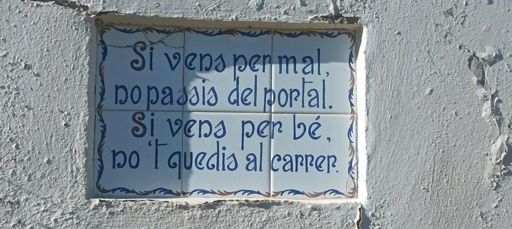 Si vens per mal,
no passis del portal.
Si vens per bé,
no 't quedis al carrer.